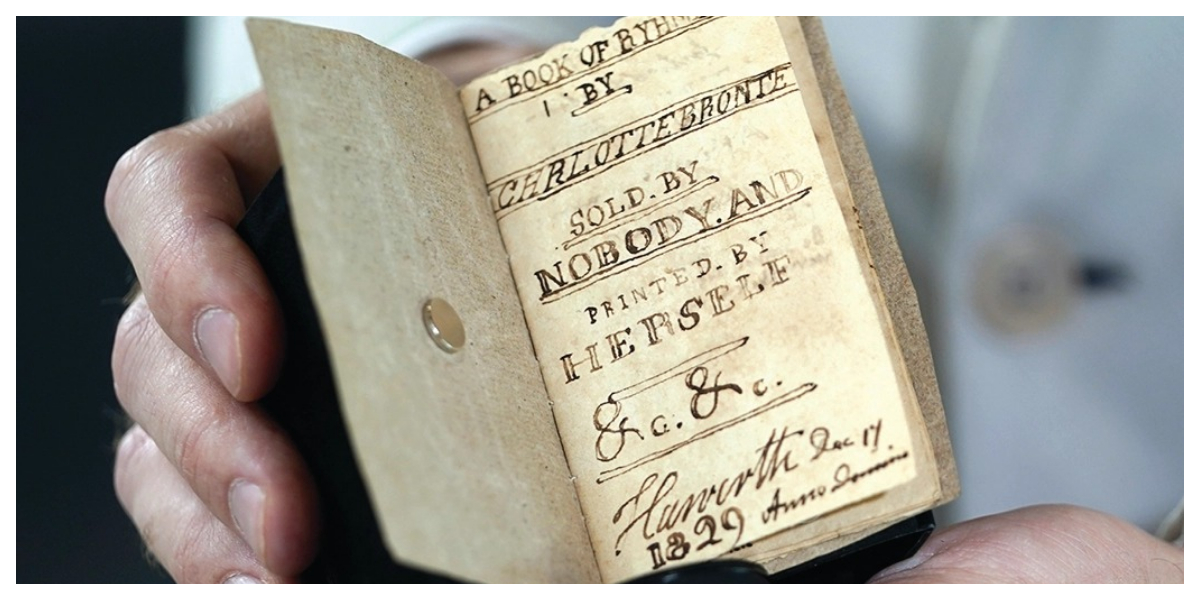 A BOOK OF RYHM
BY
CHARLOTTE BRONTE
SOLD. BY
NOBODY. AND
PRINTED. BY
HERSELF
&c. &c.
Haworth Dec 17
1829 Anno Domino